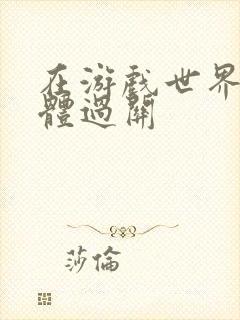 在游戲世界
體過關
莎倫